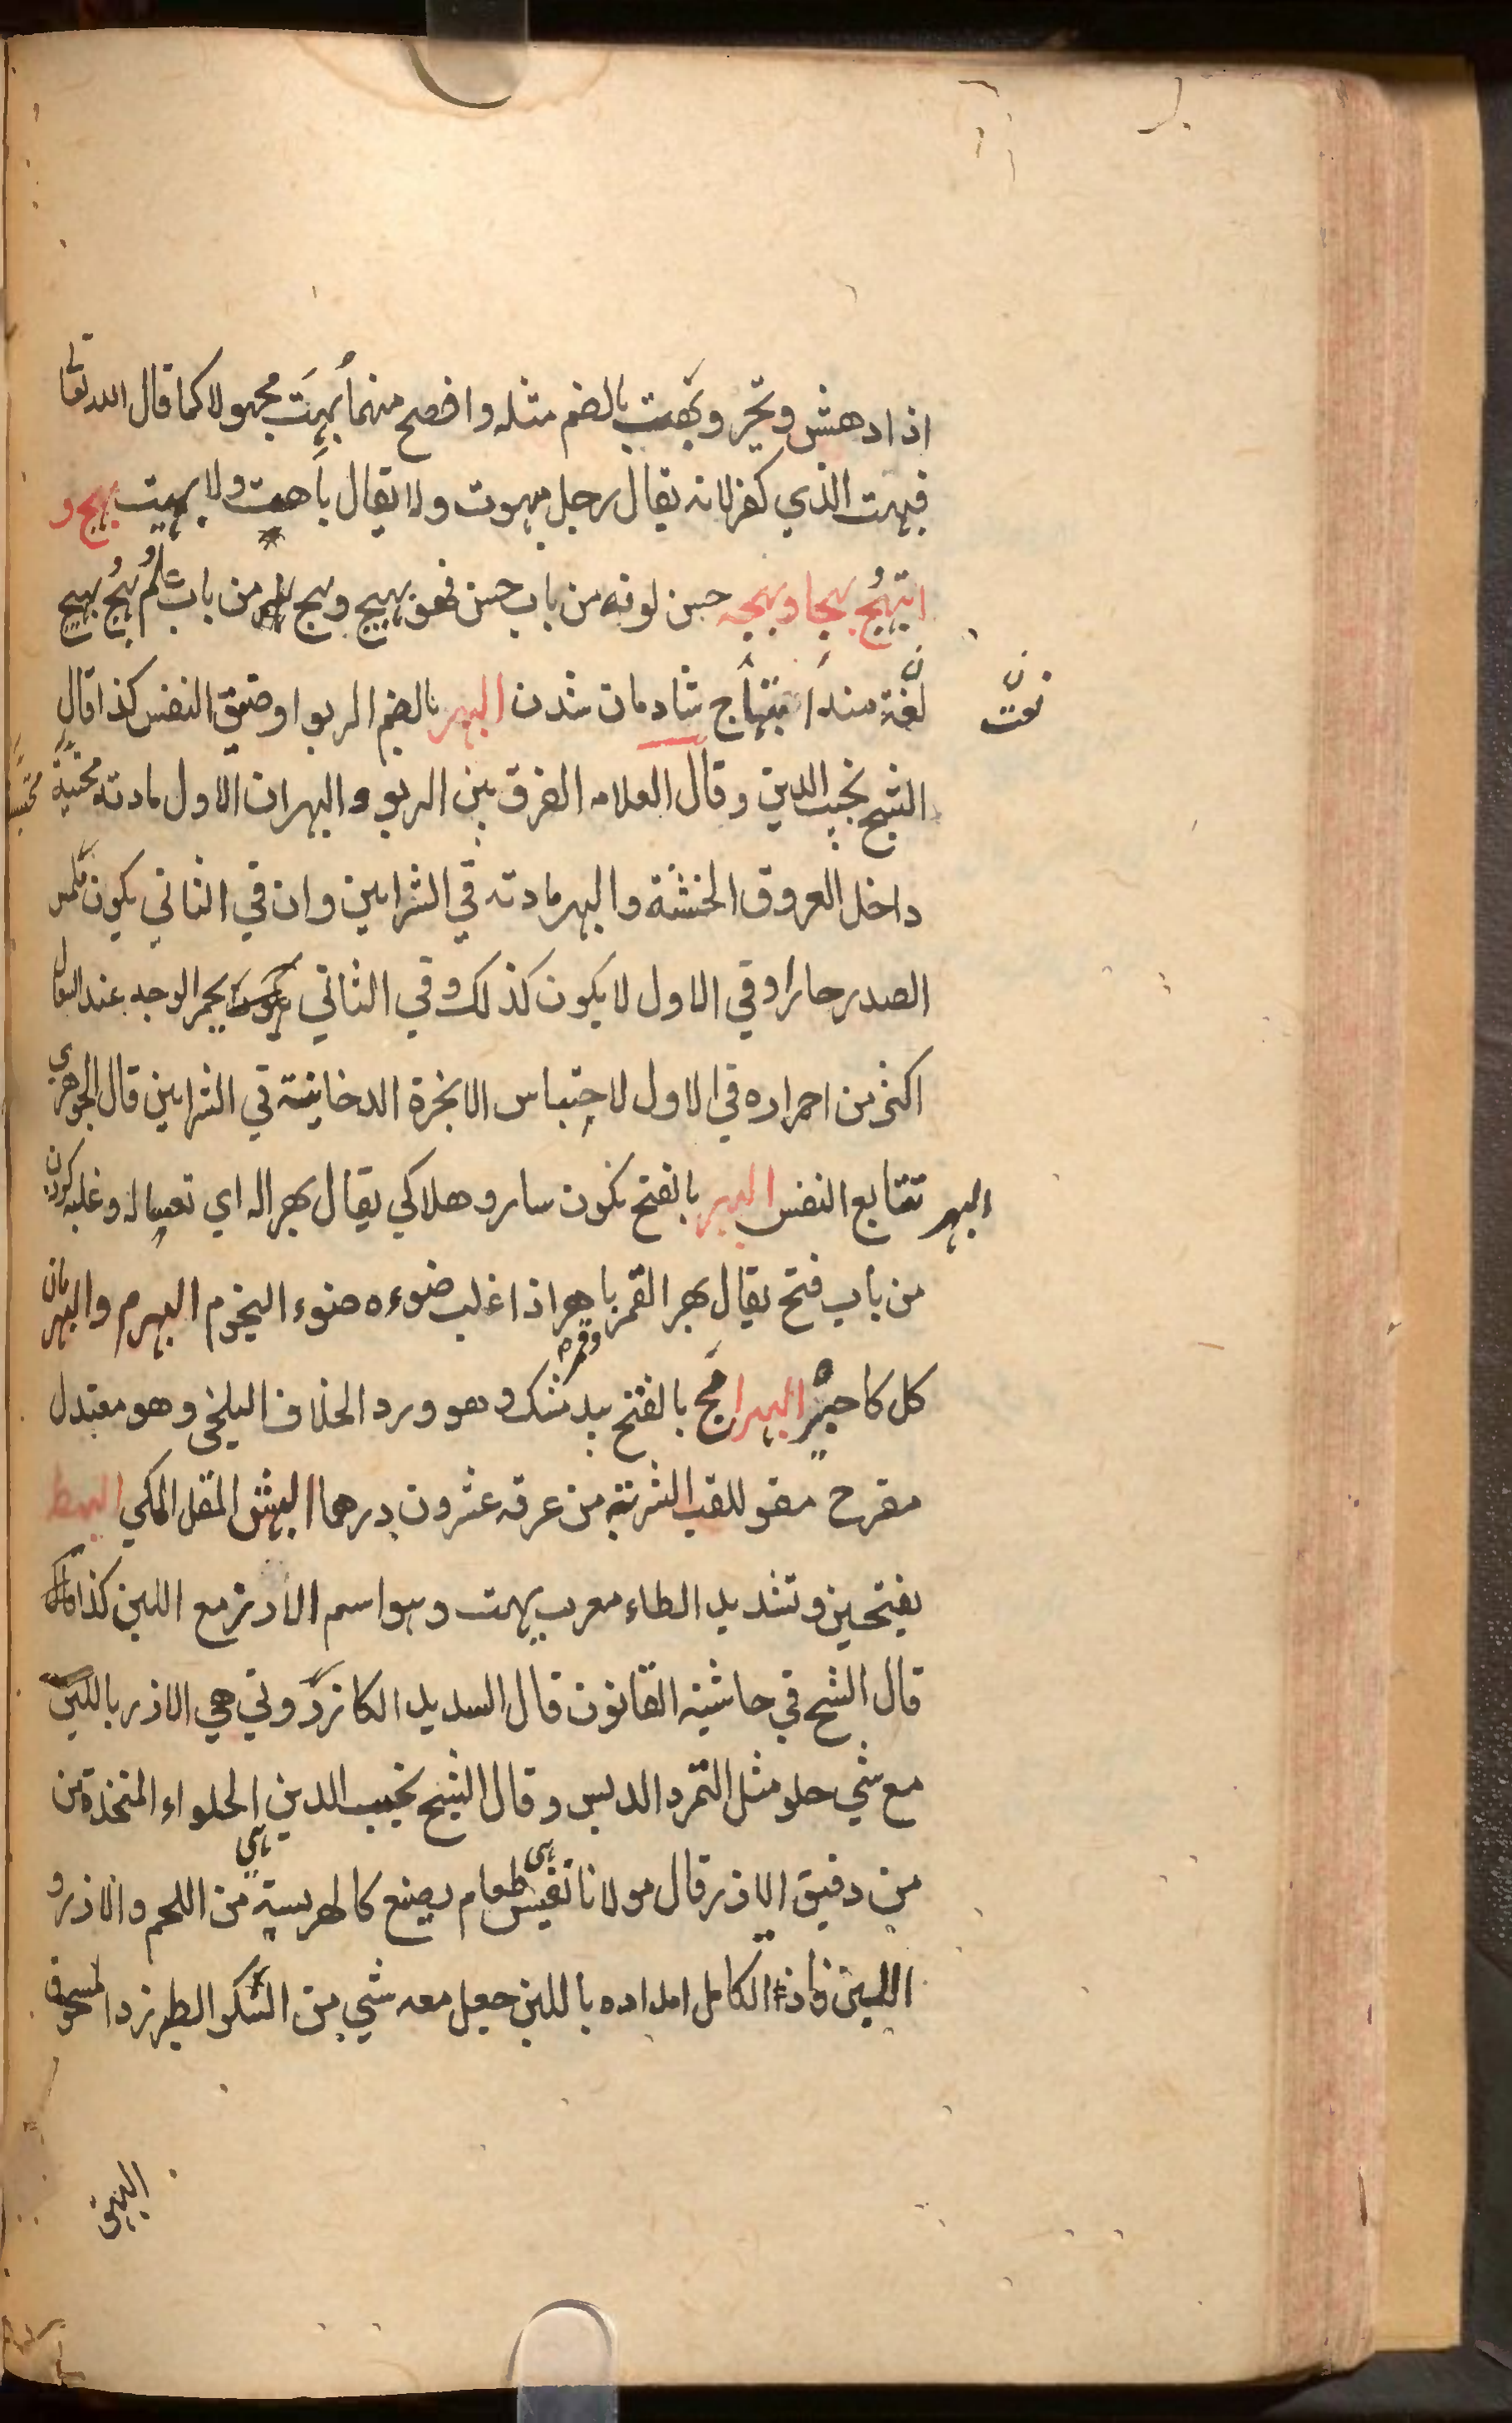 اذا دهش وتحير وبهت بالضم مثله وافصح منهما بُهِتَ مجهولا كما قال الله تعا
فبهت الذي كفر لانه يقال رجل مبهوت ولا يقال باهت ولا بهيت بهج و
ابتهج بهجا وبهجه حسن لونه من باب حسن فهو بهيج وبهج من باب علم بهج بهيج
لغة منه ابتهاج شادمان شدن البهر بالضم الربو او ضيق النفس كذا قال
نعت
الشيخ نجيب الدين وقال العلامه الفرق بين الربو و البهر ان الاول مادته محتبسة
داخل العروق الخشنة والبهر مادته في الشرايين وان في الثاني يكون ملمس
الصدر حارا وفي الاول لا يكون كذلك وفي الثاني يحمر الوجه عند السعال
اكثر من احمراره في الاول لاحتباس الابخرة الدخانية في الشرايين قال الجوهري
البهر تتابع النفس البهر بالفتح نكون سار وهلاكي يقال بهرا له اي تعسا له وغلبه كردن
من باب فتح يقال بهر القمر باهر اذا غلب ضوءه ضوء النجوم البهرم والبهرمان
وقمره
كل كاجيره البهرامج بالفتح بيد مشك وهو ورد الخلاف البلخي وهو معتدل
مفرح مقو للقلب الشربة من عرقه عشرون درهما البهش المقل المكي البهط
بفتحين وتشديد الطاء معرب بهت وهو اسم الارز مع اللبن كذا
قال الشيخ في حاشية القانون قال السديد الكازروني هي الارز باللبن
مع شي حلو مثل التمر والدبس وقال الشيخ نجيب الدين هي الحلواء المتخذة من
من دقيق الارز قال مولانا نفيس هي طعام يصنع كالهريسة من اللحم والارز و
اللبن واذا الكامل امداده باللبن جعل معه شي من السكر الطبرزد المسحوق
البهق